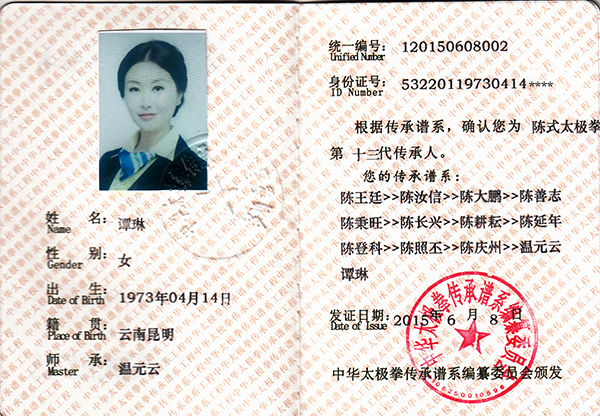 姓 名: 谭琳
Name
性 别: 女
Gender
出 生: 1973年04月14日
Date of Birth
籍 贯: 云南昆明
Place of Birth
师 承: 温元云
Master
统一编号: 120150608002
Unified Number
身份证号: 53220119730414****
ID Number
根据传承谱系,确认您为 陈式太极拳
第 十三代传承人。
您的传承谱系:
陈王廷>>陈汝信>>陈大鹏>>陈善志
陈秉旺>>陈长兴>>陈耕耘>>陈延年
陈登科>>陈照丕>>陈庆州>>温元云
谭琳
发证日期: 2015年 6 月 8 日
Date of Issue
中华太极拳传承谱系编纂委员会
中华太极拳传承谱系编纂委员会颁发